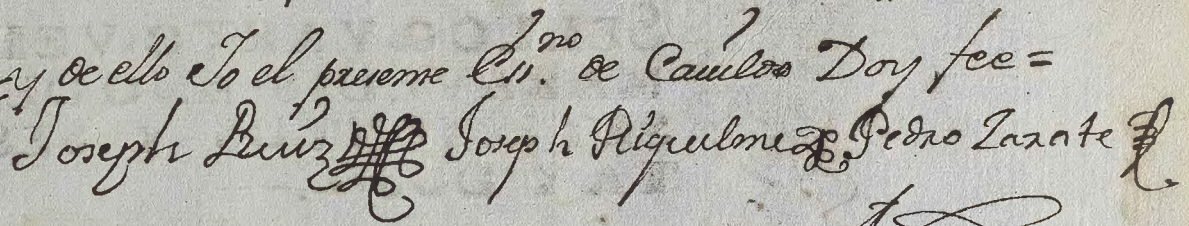 y de ello Io el presente Essno. de Cavildo Doy fee=
Joseph Ruiz Joseph Riquelme Pedro Zarate